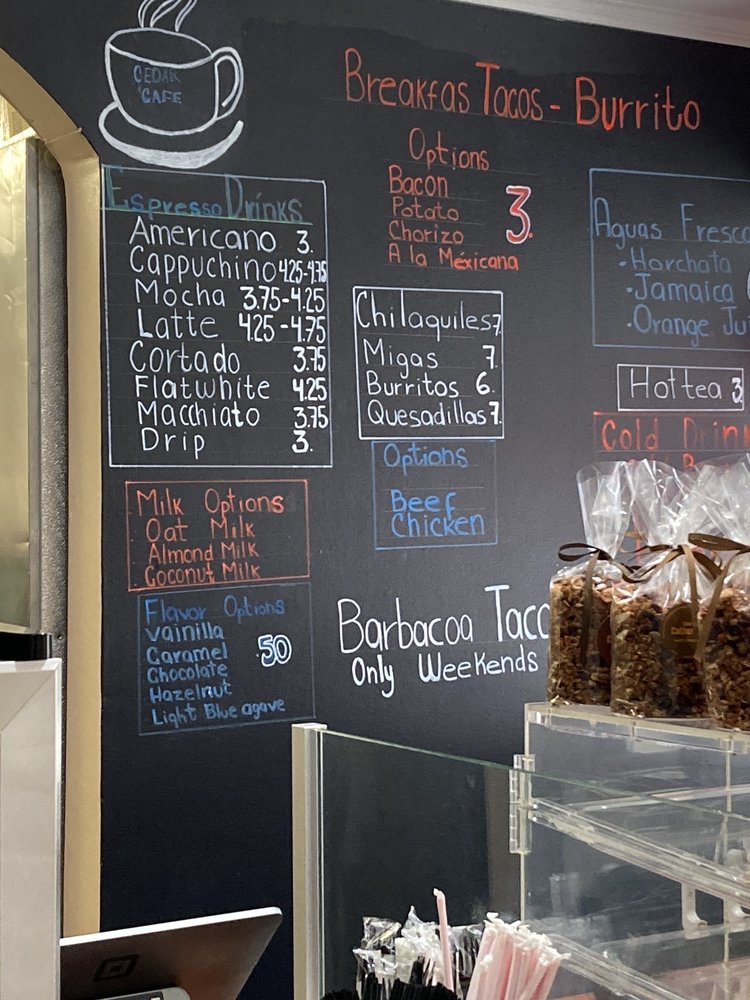 CEDAR
CAFE
Breakfas Tacos - Burrito
Options
Bacon
Potato
Chorizo
A la Mexicana
3.
Espresso Drinks
Americano 3.
Cappuchino 4.25-4.75
Mocha 3.75-4.25
Latte 4.25-4.75
Cortado 3.75
Flatwhite 4.25
Macchiato 3.75
Drip 3.
Milk Options
Oat Milk
Almond Milk
Coconut Milk
Flavor Options
Vainilla
Caramel
Chocolate
Hazelnut
Light Blue agave
.50
Chilaquiles 7.
Migas 7.
Burritos 6.
Quesadillas 7.
Options
Beef
Chicken
Barbacoa Taco
Only Weekends
Aguas Fresca
·Horchata
·Jamaica
·Orange Ju
Hot tea 3
Cold Drin